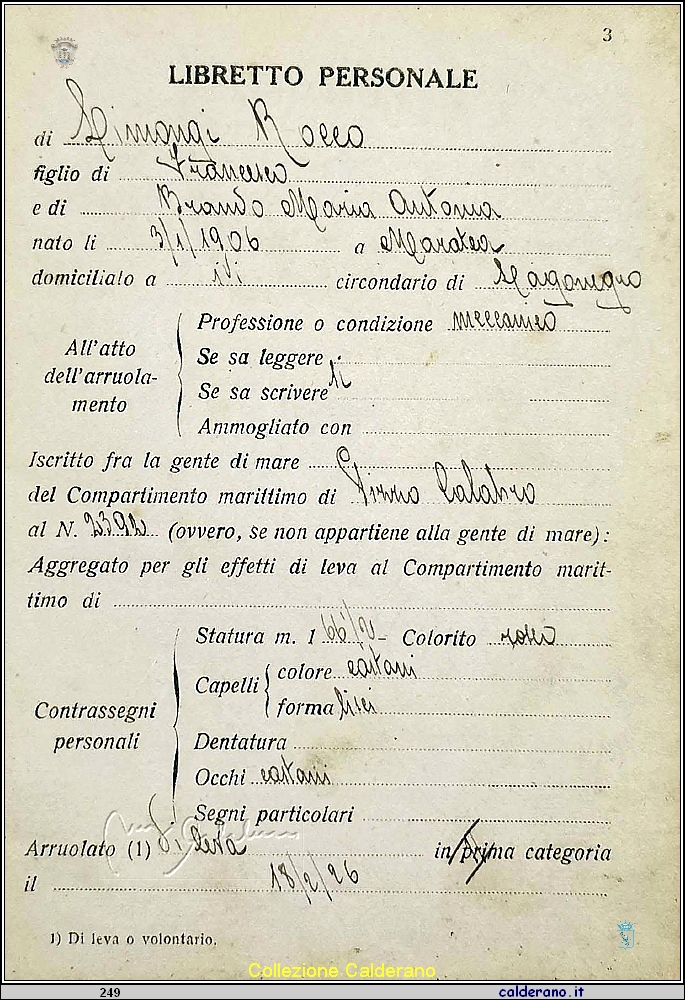 3
LIBRETTO PERSONALE
di Limongi Rocco
figlio di Francesco
e di Brando Maria Antonia
nato li 3/1/1906 a Maratea
domiciliato a ivi circondario di Lagonegro
All'atto dell'arruola-mento
Professione o condizione meccanico
Se sa leggere
Se sa scrivere si
Ammogliato con
Iscritto fra la gente di mare
del Compartimento marittimo di Pizzo Calabro
al N. 2392 (ovvero, se non appartiene alla gente di mare):
Aggregato per gli effetti di leva al Compartimento marit-
timo di
Contrassegni personali
Statura m. 1 66/2 - Colorito roseo
Capelli
colore castani
forma lisci
Dentatura
Occhi castani
Segni particolari
Arruolato (1) di leva in prima categoria
il 18/2/26
1) Di leva o volontario.
Collezione Calderano
249 calderano.it